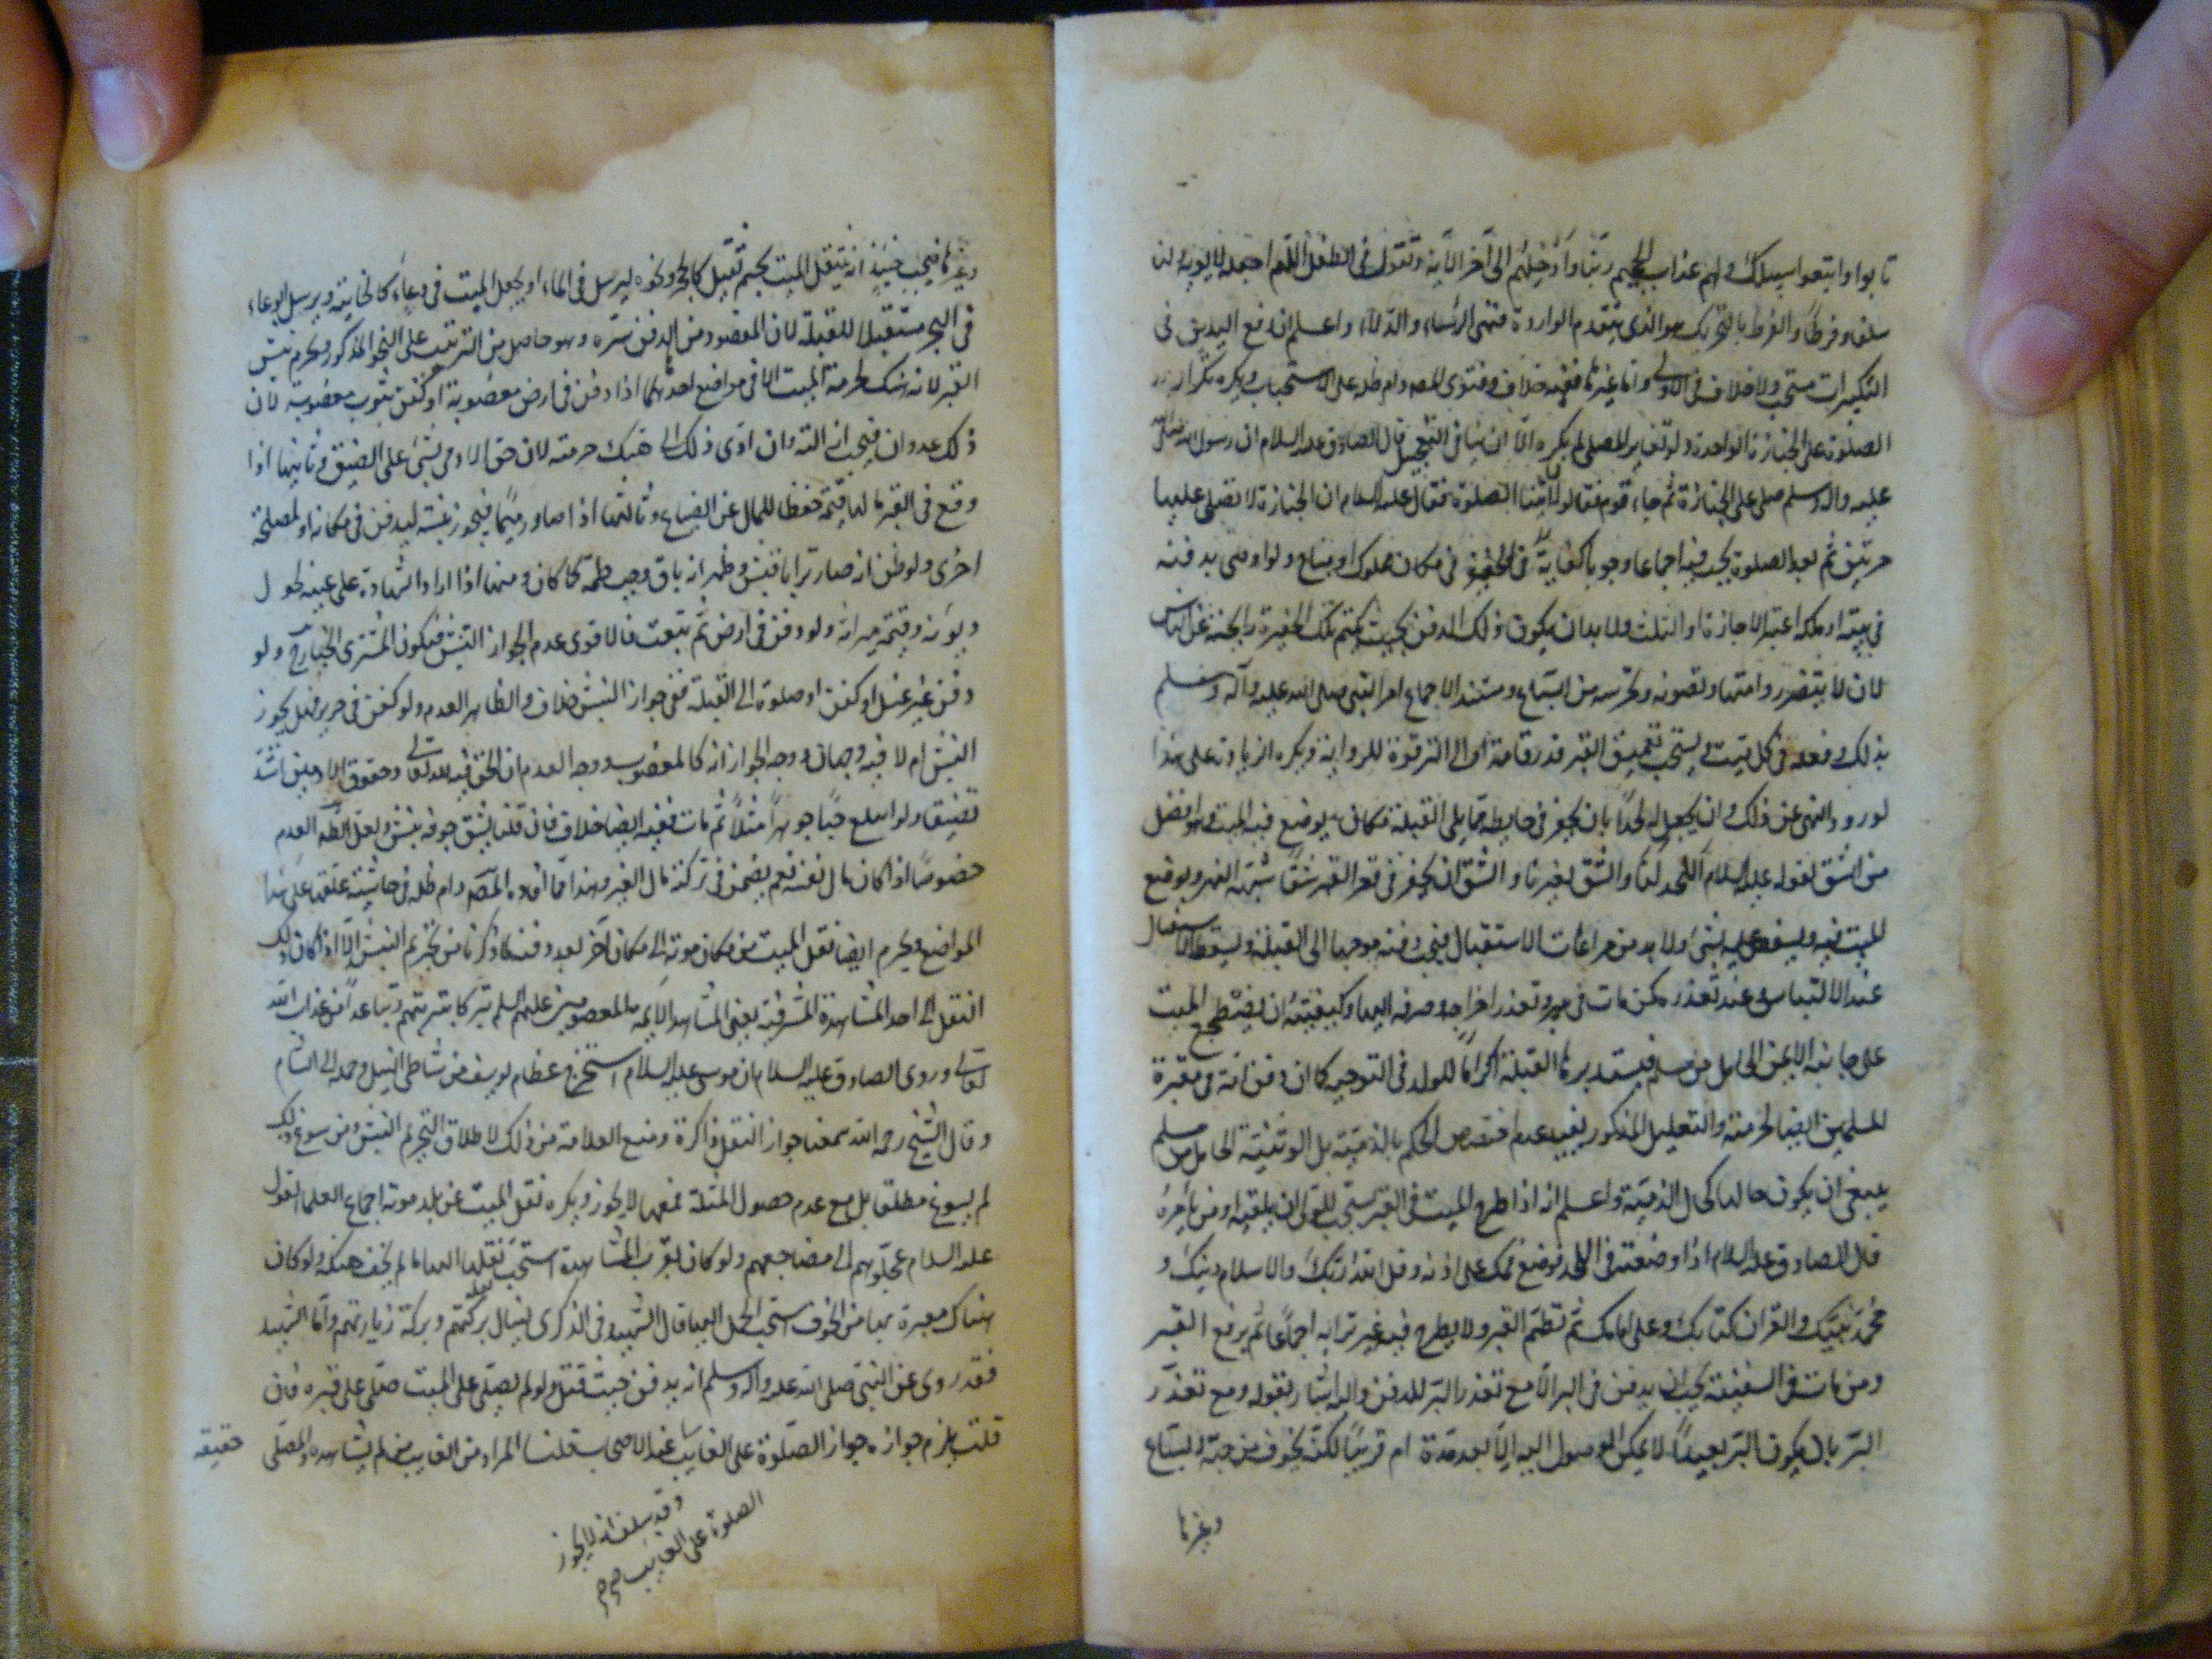 تابوا واتبعوا سبيلك وقهم عذاب الجحيم ربنا وأدخلهم الى آخر الآية وتقول في الطفل اللهم اجعله لابويه ولنا
سلفا وفرطا والفرط بالتحريك هو الذي يتقدم الواردة فتهيئ الرشاء والدلاء واعلم ان رفع اليدين في
التكبيرات مستحب ولا خلاف في الاولى واما غيرها ففيه خلاف وفتوى المصه دام ظله على الاستحباب ويكره تكرار
الصلوة على الجنازة الواحدة ولو تغاير المصلى لم يكره الا ان ينافي التعجيل قال الصادق عليه السلام ان رسول الله صلى الله
عليه واله وسلم صلى على الجنازة ثم جاء قوم فقالوا فاتتنا الصلوة فقال عليه السلام ان الجنازة لا تصلى عليها
مرتين ثم بعد الصلوة يجب دفنه اجماعا وجوبا كفاية في حفيرة في مكان مملوك او مباح ولو اوصى بدفنه
في بيته او ملكه اعتبر الاجازة او الثلث ولا بد ان يكون ذلك الدفن بحيث يكتم تلك الحفيرة رايحته عن الناس
لان لا يتضرر وامنها وتصونه وتحرسه من السباع ومستند الاجماع امر النبي صلى الله عليه وآله وسلم
بذلك وفعله في كل ميت ويستحب تعميق القبر قدر قامة او الى الترقوة للرواية ويكره الزيادة على هذا
لورود النهي عن ذلك وان يجعل له لحدا بان يحفر في حايطه مما يلي القبلة مكان يوضع فيه الميت وهو افضل
من الشق لقوله عليه السلام اللحد لنا والشق لغيرنا والشق ان يحفر في قعر القبر شقا شبه النهر ويوضع
الميت فيه ويسقف عليه بشئ ولا بد من مراعات الاستقبال فيجب دفنه موجها الى القبلة ويسقط الاستقبال
عند الالتباس وعند تعذره كمن مات في بير وتعذر اخراجه وصرفه اليها وكيفيته ان يضطجع الميت
على جانبه الايمن الى الحامل من مسلم فيستدبر بها القبلة اكراما للولد في التوجيه كما ان دفن امه في مقبرة
المسلمين ايضا لحرمته والتعليل المذكور يفيد عدم اختصاص الحكم بالذمية بل الوثنية الحامل من مسلم
ينبغي ان يكون حالها كحال الذمية واعلم انه اذا طرح الميت في القبر يستحب للولي ان يلقنه او من يأمره
قال الصادق عليه السلام اذا وضعته في اللحد فوضع فمك على اذنه وقل الله ربك والاسلام دينك و
محمد نبيك والقرآن كتابك وعلى امامك ثم تطم القبر ولا يطرح فيه غير ترابه اجماعا ثم يرفع القبر
ومن مات في السفينة يجب ان يدفن في البر الا مع تعذر البر للدفن واليه اشار بقوله ومع تعذر
البر بان يكون البر بعيدا لا يمكن الوصول اليه الا بعد مدة ام قريبا لكنه يخوف من جهة السباع
وغيرها
وغيرها فيجب حينئذ ان يثقل الميت بجسم ثقيل كالحجر ونحوه ليرسل في الماء او يجعل الميت في وعاء كالخابية ويرسل الوعاء
في البحر مستقبلا للقبلة لان المقصود من الدفن ستره وهو حاصل من الترتيب على النحو المذكور ويحرم نبش
القبر لانه هتك لحرمة الميت الا في مواضع احدها اذا دفن في ارض مغصوبة او كفن بثوب مغصوب لان
ذلك عدوان فيجب ازالته وان ادى ذلك الى هتك حرمته لان حق الادمي بنى على الضيق وثانيها اذا
وقع في القبر ما له قيمة حفظا للمال عن الضياع وثالثها اذا صار رميما فيجوز نبشه ليدفن في مكانه او لمصلحة
اخرى ولو ظن انه صار ترابا فنبش وظهر انه باق وجب طمه كما كان ومنها اذا اراد الشهادة على عينه لحول
ديونه وقسمة ميراثه ولو دفن في ارض ثم بيعت فالاقوى عدم الجواز النبش فيكون للمشتري الخيار ح ولو
دفن بغير غسل او كفن او صلوة الى القبلة ففي جواز النبش خلاف والظاهر العدم ولو كفن في حرير فهل يجوز
النبش ام لا فيه وجهان ووجه الجواز انه كالمغصوب ووجه العدم ان الحق فيه لله تعالى وحقوق الادميين اشد
تضييقا ولو ابتلع حيا جوهرا مثلا ثم مات ففيه ايضا خلاف فان قلنا يشق جوفه ينبش ولعل الظاهر العدم
خصوصا اذا كان مال نفسه نعم يضمن في تركته مال الغير وهذا مما افاده المصه دام ظله في حاشيته علقها على هذا
المواضع ويحرم ايضا نقل الميت من مكان موته الى مكان آخر بعد دفنه لما ذكرنا من تحريم النبش الا اذا كان ذلك
النقل الى احد المشاهدة المشرفة يعني المشاهد الائمة المعصومين عليهم السلم تبركا بتربتهم وتباعدا من عذاب الله
تعالى وروى الصادق عليه السلام ان موسى عليه السلام استخرج عظام يوسف من شاطئ النيل وحمله الى الشام
وقال الشيخ رحمه الله سمعنا جواز النقل مذاكرة ومنع العلامة من ذلك لاطلاق التحريم النبش ومن سوغ ذلك
لم يسوغ مطلقا بل مع عدم حصول المثلة فمعها لا يجوز ويكره نقل الميت عن بلد موته باجماع العلماء لقول
عليه السلام عجلوهم الى مضاجعهم ولو كان بقرب المشاهدة استحب نقله اليها ما لم يخف هتكه ولو كان
هناك مقبرة بها من الخوف استحب الحمل اليها قال الشهيد في الذكرى لينال بركتهم وبركة زيارتهم واما الشهيد
فقد روى عن النبي صلى الله عليه وآله وسلم انه يدفن حيث قتل ولو لم يصلى على الميت صلى على قبره فان
قلت يلزم جوازه جواز الصلوة على الغايب عند الاصحاب قلنا المراد من الغايب من لم يشاهده المصلى حقيقه
وقد سلف انه لا يجوز
الصلوة على الغايب